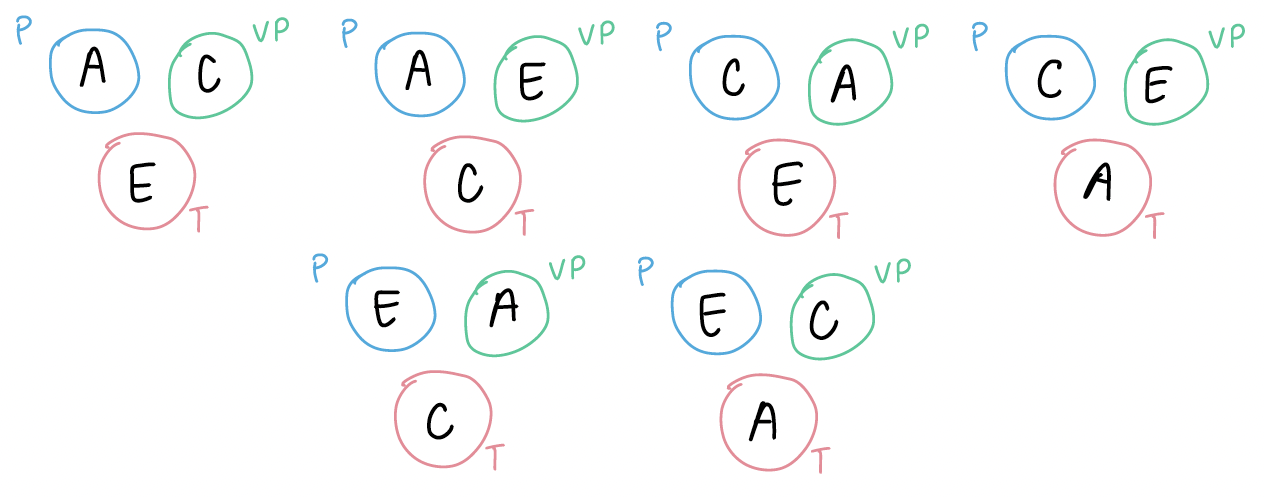 P A C VP
E T
P A E VP
C T
P C A VP
E T
P C E VP
A T
P E A VP
C T
P E C VP
A T